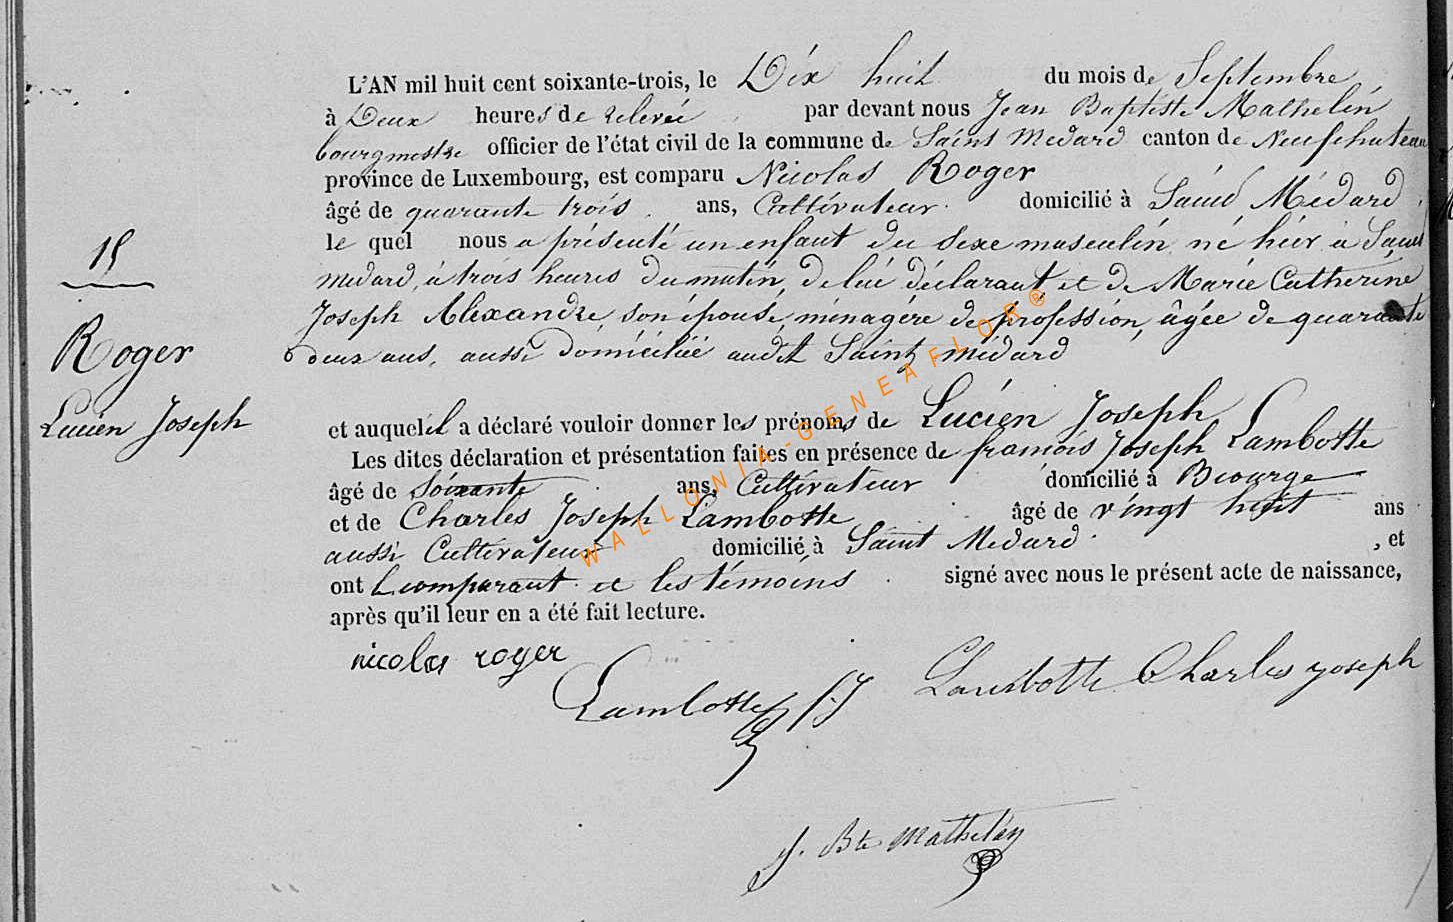 L'AN mil huit cent soixante-trois, le Dix huit du mois de Septembre
à Deux heures de relevée par devant nous Jean Baptiste Mathelin
bourgmestre officier de l'état civil de la commune de Saint Medard canton de Neufchateau
province de Luxembourg, est comparu Nicolas Roger
âgé de quarante trois ans, Cultivateur domicilié à Saint Médard
le quel nous a présenté un enfant du sexe masculin né hier à Saint
15
Medard, à trois heures du matin, de lui déclarant et de Marie Catherine
Joseph Alexandre, son épouse, ménagère de profession, âgée de quarante
Roger
deux ans, aussi domiciliée audit Saint médard
Lucien Joseph
et auquel il a déclaré vouloir donner les prénoms de Lucien Joseph
Les dites déclaration et présentation faites en présence de francois Joseph Lambotte
âgé de Soixante ans, Cultivateur domicilié à Biourge
et de Charles Joseph Lambotte âgé de vingt huit ans
aussi Cultivateur domicilié à Saint Medard , et
ont le comparant et les témoins signé avec nous le présent acte de naissance,
après qu'il leur en a été fait lecture.
nicolas roger
Lambotte f. J
Lambotte Charles joseph
J. Bte Mathelin
WALLONIA-GENEAFLOR®